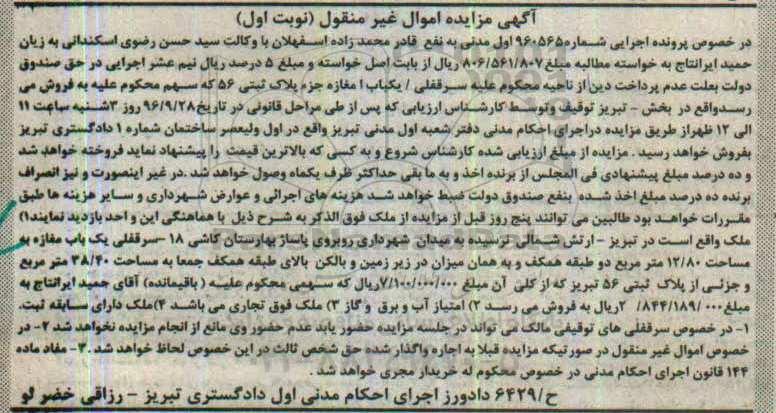 آگهی مزایده اموال غیر منقول (نوبت اول)
در خصوص پرونده اجرایی شماره ۹۶۰۵۶۵ اول مدنی به نفع قادر محمد زاده اسفهلان با وکالت سید حسن رضوی اسکندانی به زیان
حمید ایرانتاج به خواسته مطالبه مبلغ ۸۰۶/۵۶۱/۸۰۷ ریال از بابت اصل خواسته و مبلغ ۵ درصد ریال نیم عشر اجرایی در حق صندوق
دولت بعلت عدم پرداخت دین از ناحیه محکوم علیه سرقفلی / یکباب ا مغازه جزء پلاک ثبتی ۵۶ که سهم محکوم علیه به فروش می
رسد واقع در بخش - تبریز توقیف و توسط کارشناس ارزیابی که پس از طی مراحل قانونی در تاریخ ۹۶/۹/۲۸ روز ۳شنبه ساعت ۱۱
الی ۱۲ ظهر از طریق مزایده در اجرای احکام مدنی دفتر شعبه اول مدنی تبریز واقع در اول ولیعصر ساختمان شماره ۱ دادگستری تبریز
بفروش خواهد رسید . مزایده از مبلغ ارزیابی شده کارشناس شروع و به کسی که بالاترین قیمت را پیشنهاد نماید فروخته خواهد شد
و ده درصد مبلغ پیشنهادی فی المجلس از برنده اخذ و به ما بقی حداکثر ظرف یکماه وصول خواهد شد .در غیر اینصورت و نیز انصراف
برنده ده درصد مبلغ اخذ شده بنفع صندوق دولت ضبط خواهد شد هزینه های اجرائی و عوارض شهرداری و سایر هزینه ها طبق
مقررات خواهد بود طالبین می توانند پنج روز قبل از مزایده از ملک فوق الذکر به شرح ذیل با هماهنگی این واحد بازدید نمایند۱)
ملک واقع است در تبریز - ارتش شمالی نرسیده به میدان شهرداری روبروی پاساژ بهارستان کاشی ۱۸ -سرقفلی یک باب مغازه به
مساحت ۱۲/۸۰ متر مربع دو طبقه همکف و به همان میزان در زیر زمین و بالکن بالای طبقه همکف جمعا به مساحت ۳۸/۴۰ متر مربع
و جزئی از پلاک ثبتی ۵۶ تبریز که از کلی آن مبلغ ۷/۱۰۰/۰۰۰/۰۰۰ریال که سهمی محکوم علیه ( باقیمانده) آقای حمید ایرانتاج به
مبلغ ۲/۸۴۴/۱۸۹/۰۰۰ریال به فروش می رسد ۲) امتیاز آب و برق و گاز ۳) ملک فوق تجاری می باشد ۴)ملک دارای سابقه ثبت.
۱- در خصوص سرقفلی های توقیفی مالک می تواند در جلسه مزایده حضور یابد عدم حضور وی مانع از انجام مزایده نخواهد شد ۲- در
خصوص اموال غیر منقول در صورتیکه مزایده قبلا به اجاره واگذار شده حق شخص ثالث در این خصوص لحاظ خواهد شد .۳- مفاد ماده
۱۴۴ قانون اجرای احکام مدنی در خصوص محکوم له خریدار مجری خواهد شد .
ح/۶۴۲۹ دادورز اجرای احکام مدنی اول دادگستری تبریز - رزاقی خضر لو